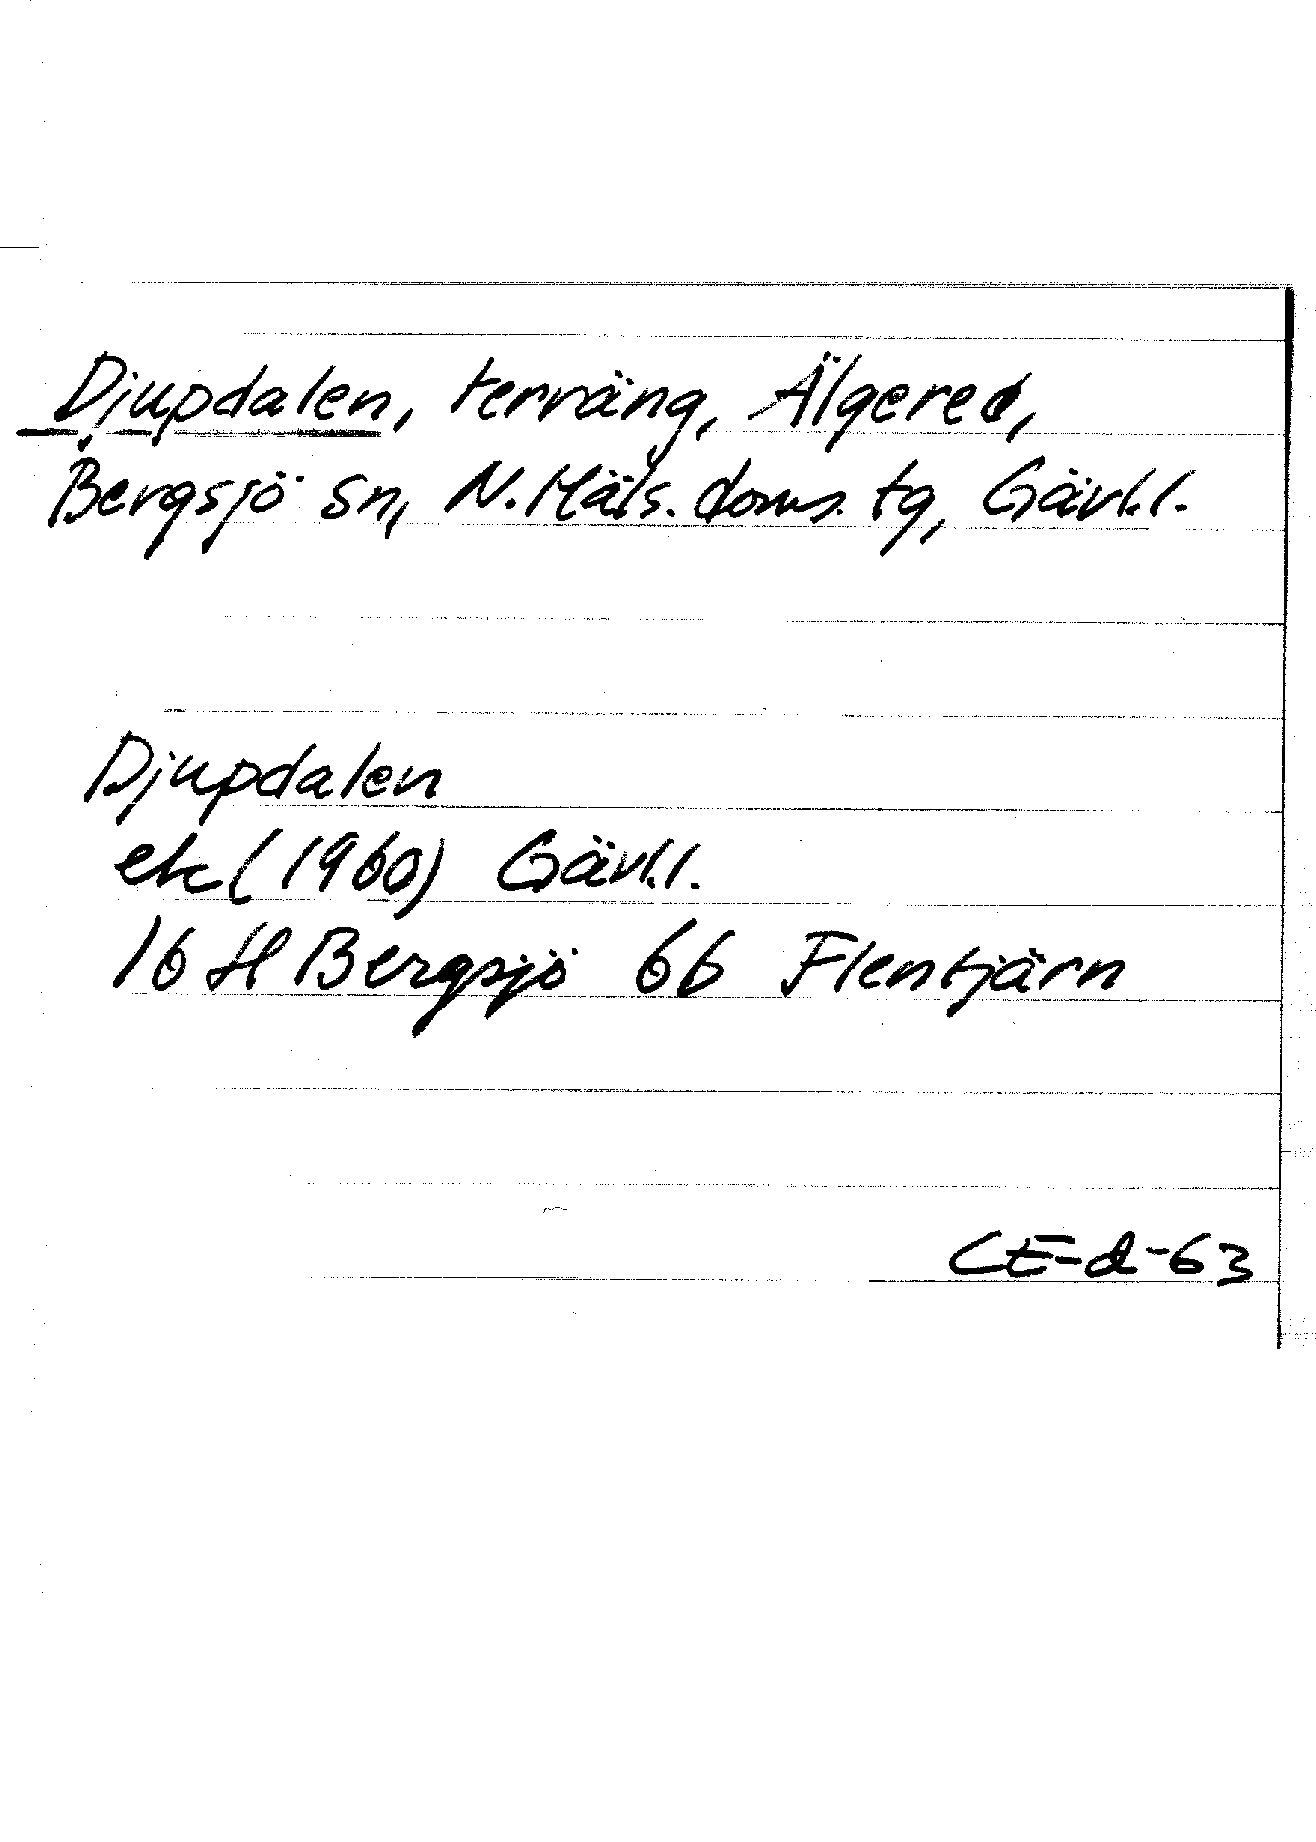 Djupdalen, terräng, Älgered,
Bergsjö sn, N. Häls. doms. tg, Gävl. l.
Djupdalen
ek (1960) Gävl. l.
16 H Bergsjö 6b Flentjärn
CE-d-63